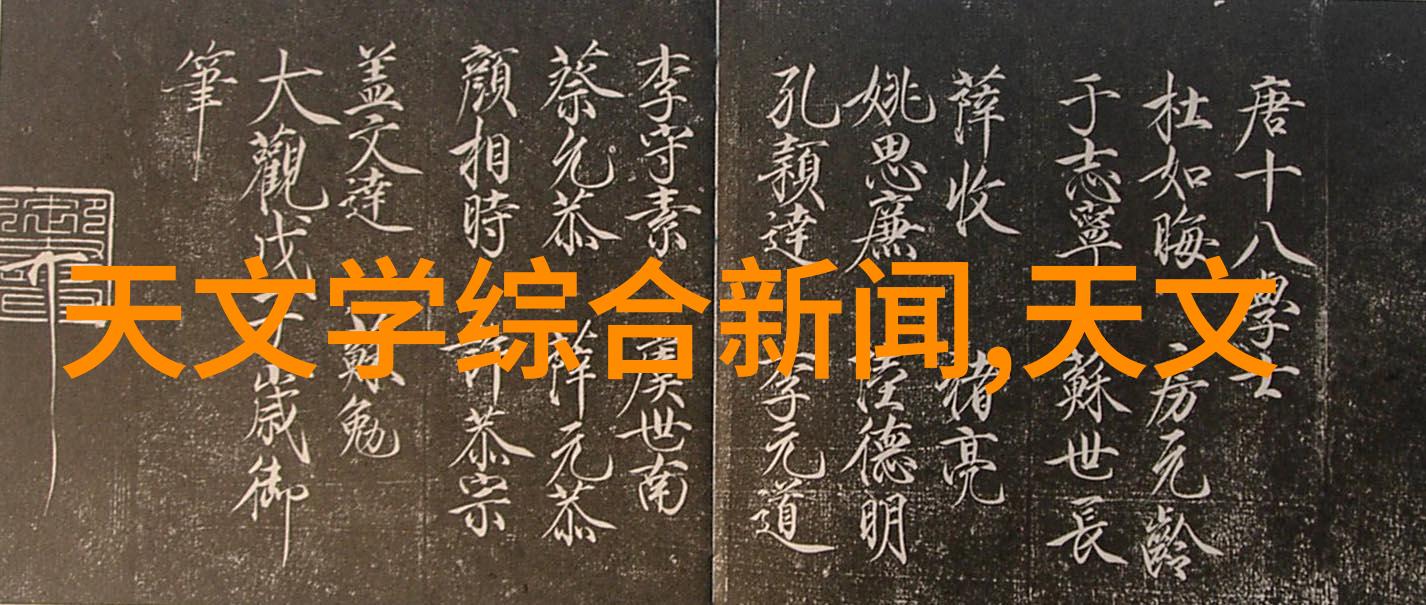 唐十八學士
杜如晦 房元齡
于志寧 蘇世長
薛收 褚亮
姚思廉 陸德明
孔穎達 李元道
李守素 虞世南
蔡允恭 薛元恭
顔相時 許恭宗
盖文達 蘇勉
大觀戊子歲御
筆
天文学综合新闻,天文